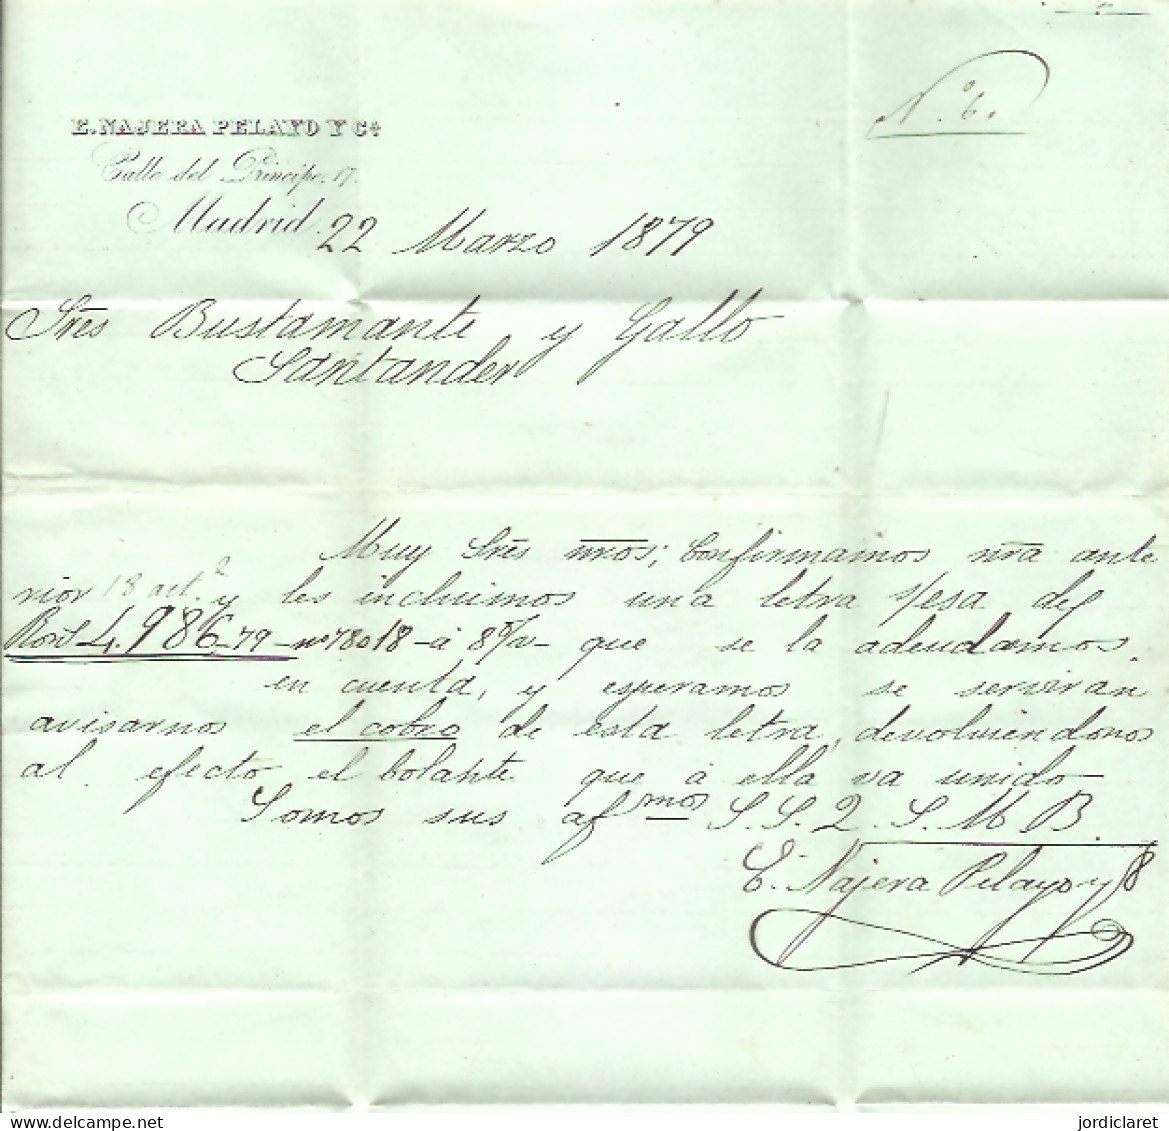 Nº 6.
E. NAJERA PELAYO Y Cª
Calle del Principe, 17.
Madrid 22 Marzo 1879
Sres Bustamante y Gallo
Santander
Muy Sres nros; Confirmamos nra ante
rior 18 act.º y les incluimos una letra s/esa de
Rvon 4.986-79 - nº 78018 - á 8 d/v - que se la adeudamos
en cuenta, y esperamos se servirán
avisarnos el cobro de esta letra, devolviendonos
al efecto, el bolante que á ella va unido
Somos sus afmos S. S. Q. S. M. B.
E. Najera Pelayo y Cª
www.delcampe.net
jordiclaret